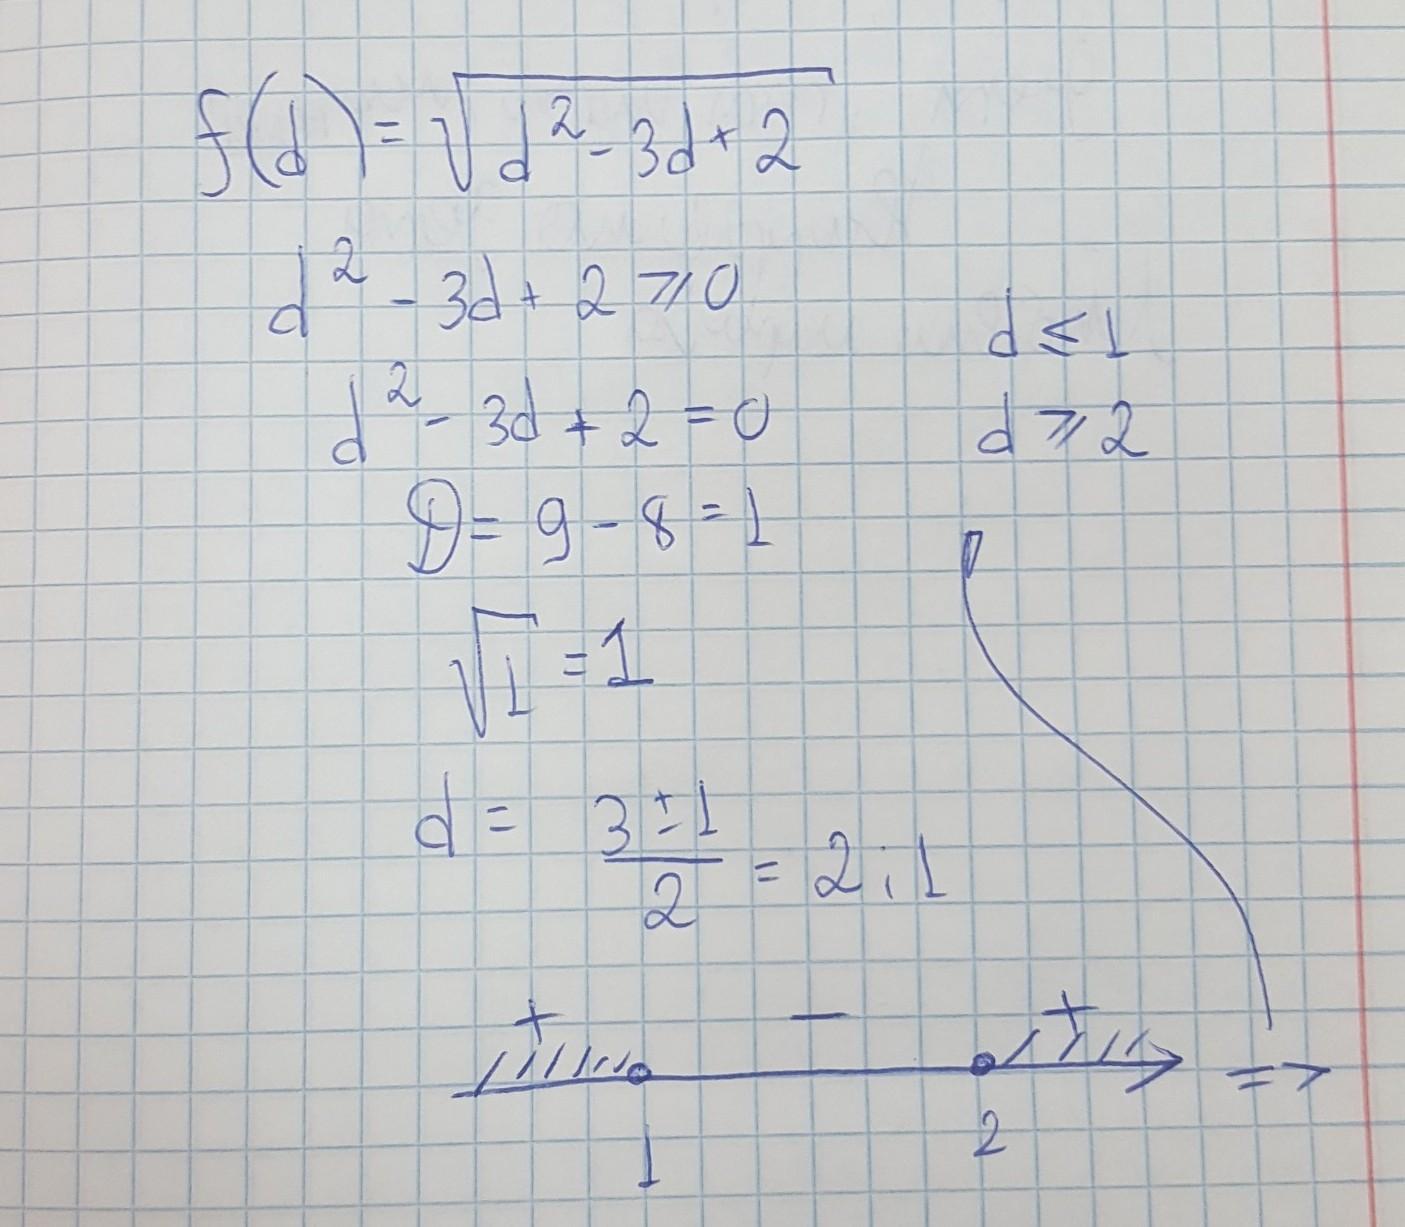 f(d) = √(d² - 3d + 2)
d² - 3d + 2 ⩾ 0
d² - 3d + 2 = 0
D = 9 - 8 = 1
√1 = 1
d = (3 ± 1)/2 = 2; 1
+ − +
1 2
=>
d ⩽ 1
d ⩾ 2